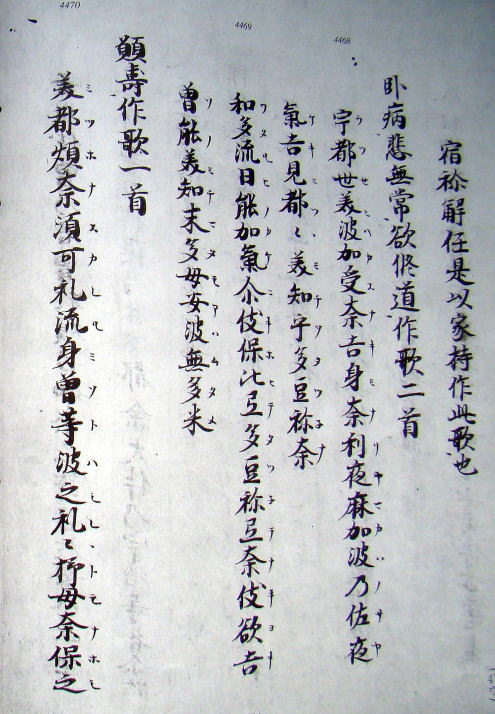 宿祢解任是以家持作此歌也
卧病悲無常欲修道作歌二首
4468
宇都世美波加受奈吉身奈利夜麻加波乃佐夜
氣吉見都々美知乎多豆祢奈
4469
和多流日能加氣尒伎保比弖多豆祢弖奈伎欲吉
曽能美知末多母安波無多米
4470
願壽作歌一首
美都煩奈須可礼流身曽等波之礼々杼母奈保之